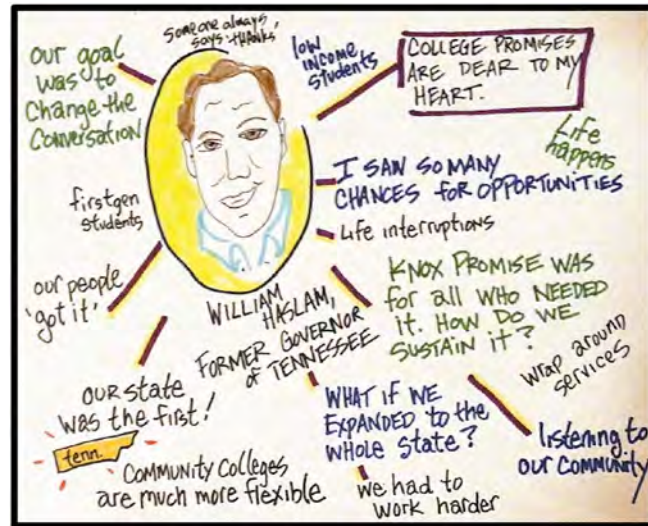 someone always
says "thanks"
our goal
was to
change the
conversation
low
income
students
COLLEGE PROMISES
ARE DEAR TO MY
HEART.
Life
happens
I SAW SO MANY
CHANCES FOR OPPORTUNITIES
firstgen
students
Life interruptions
our people
'got it'
WILLIAM
HASLAM,
FORMER GOVERNOR
of TENNESSEE
KNOX PROMISE WAS
for all WHO NEEDED
it. HOW DO WE
SUSTAIN it?
wrap around
services
our state
was the first!
tenn.
COMMUNITY COLLEGES
are much more flexible
WHAT IF WE
EXPANDED to the
WHOLE STATE?
we had to
work harder
listening to
our community